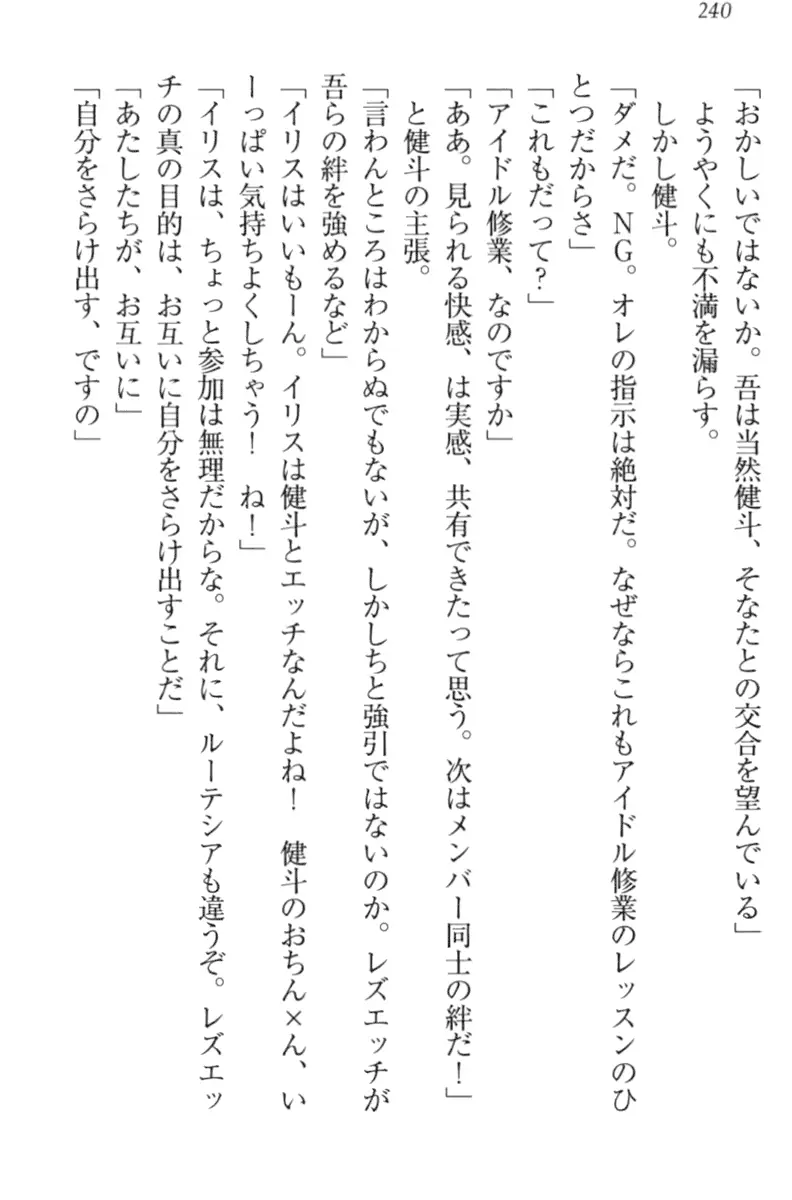 240
「おかしいではないか。吾は当然健斗、そなたとの交合を望んでいる」
ようやくにも不満を漏らす。
しかし健斗。
「ダメだ。NG。オレの指示は絶対だ。なぜならこれもアイドル修業のレッスンのひ
とつだからさ」
「これもだって?」
「アイドル修業、なのですか」
「ああ。見られる快感、は実感、共有できたって思う。次はメンバー同士の絆だ!」
と健斗の主張。
「言わんところはわからぬでもないが、しかしちと強引ではないのか。レズエッチが
吾らの絆を強めるなど」
「イリスはいいもーん。イリスは健斗とエッチなんだよね! 健斗のおちん×ん、い
ーっぱい気持ちよくしちゃう! ね!」
「イリスは、ちょっと参加は無理だからな。それに、ルーテシアも違うぞ。レズエッ
チの真の目的は、お互いに自分をさらけ出すことだ」
「あたしたちが、お互いに」
「自分をさらけ出す、ですの」